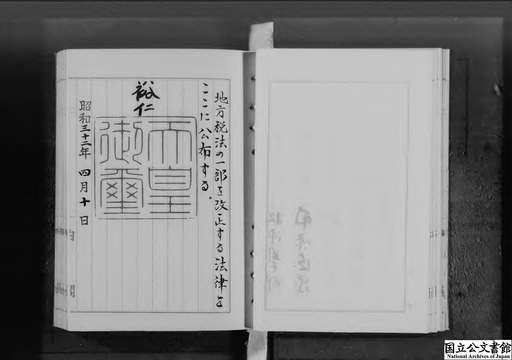 地方税法の一部を改正する法律を
ここに公布する。
裕仁
天皇
御璽
昭和三十二年 四月十日
国立公文書館
National Archives of Japan